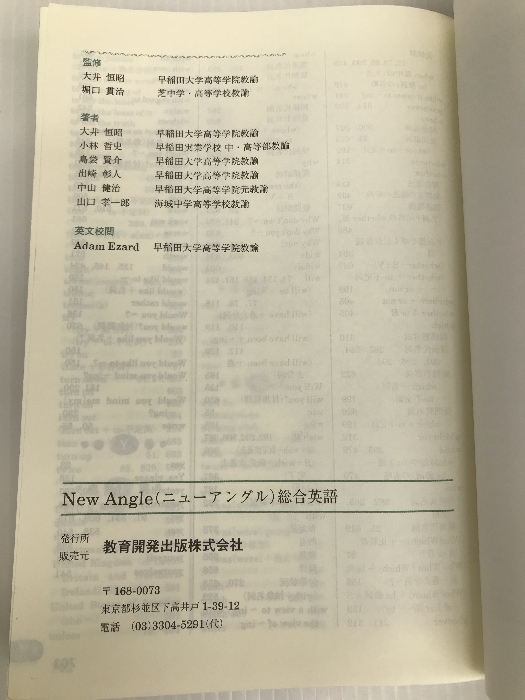 監修
大井 恒昭 早稲田大学高等学院教諭
堀口 貫治 芝中学・高等学校教諭
著者
大井 恒昭 早稲田大学高等学院教諭
小林 哲史 早稲田実業学校 中・高等部教諭
島袋 賢介 早稲田大学高等学院教諭
出崎 彰人 早稲田大学高等学院教諭
中山 健治 早稲田大学高等学院元教諭
山口 孝一郎 海城中学高等学校教諭
英文校閲
Adam Ezard 早稲田大学高等学院教諭
New Angle(ニューアングル)総合英語
発行所
販売元 教育開発出版株式会社
〒168-0073
東京都杉並区下高井戸 1-39-12
電話 (03)3304-5291(代)